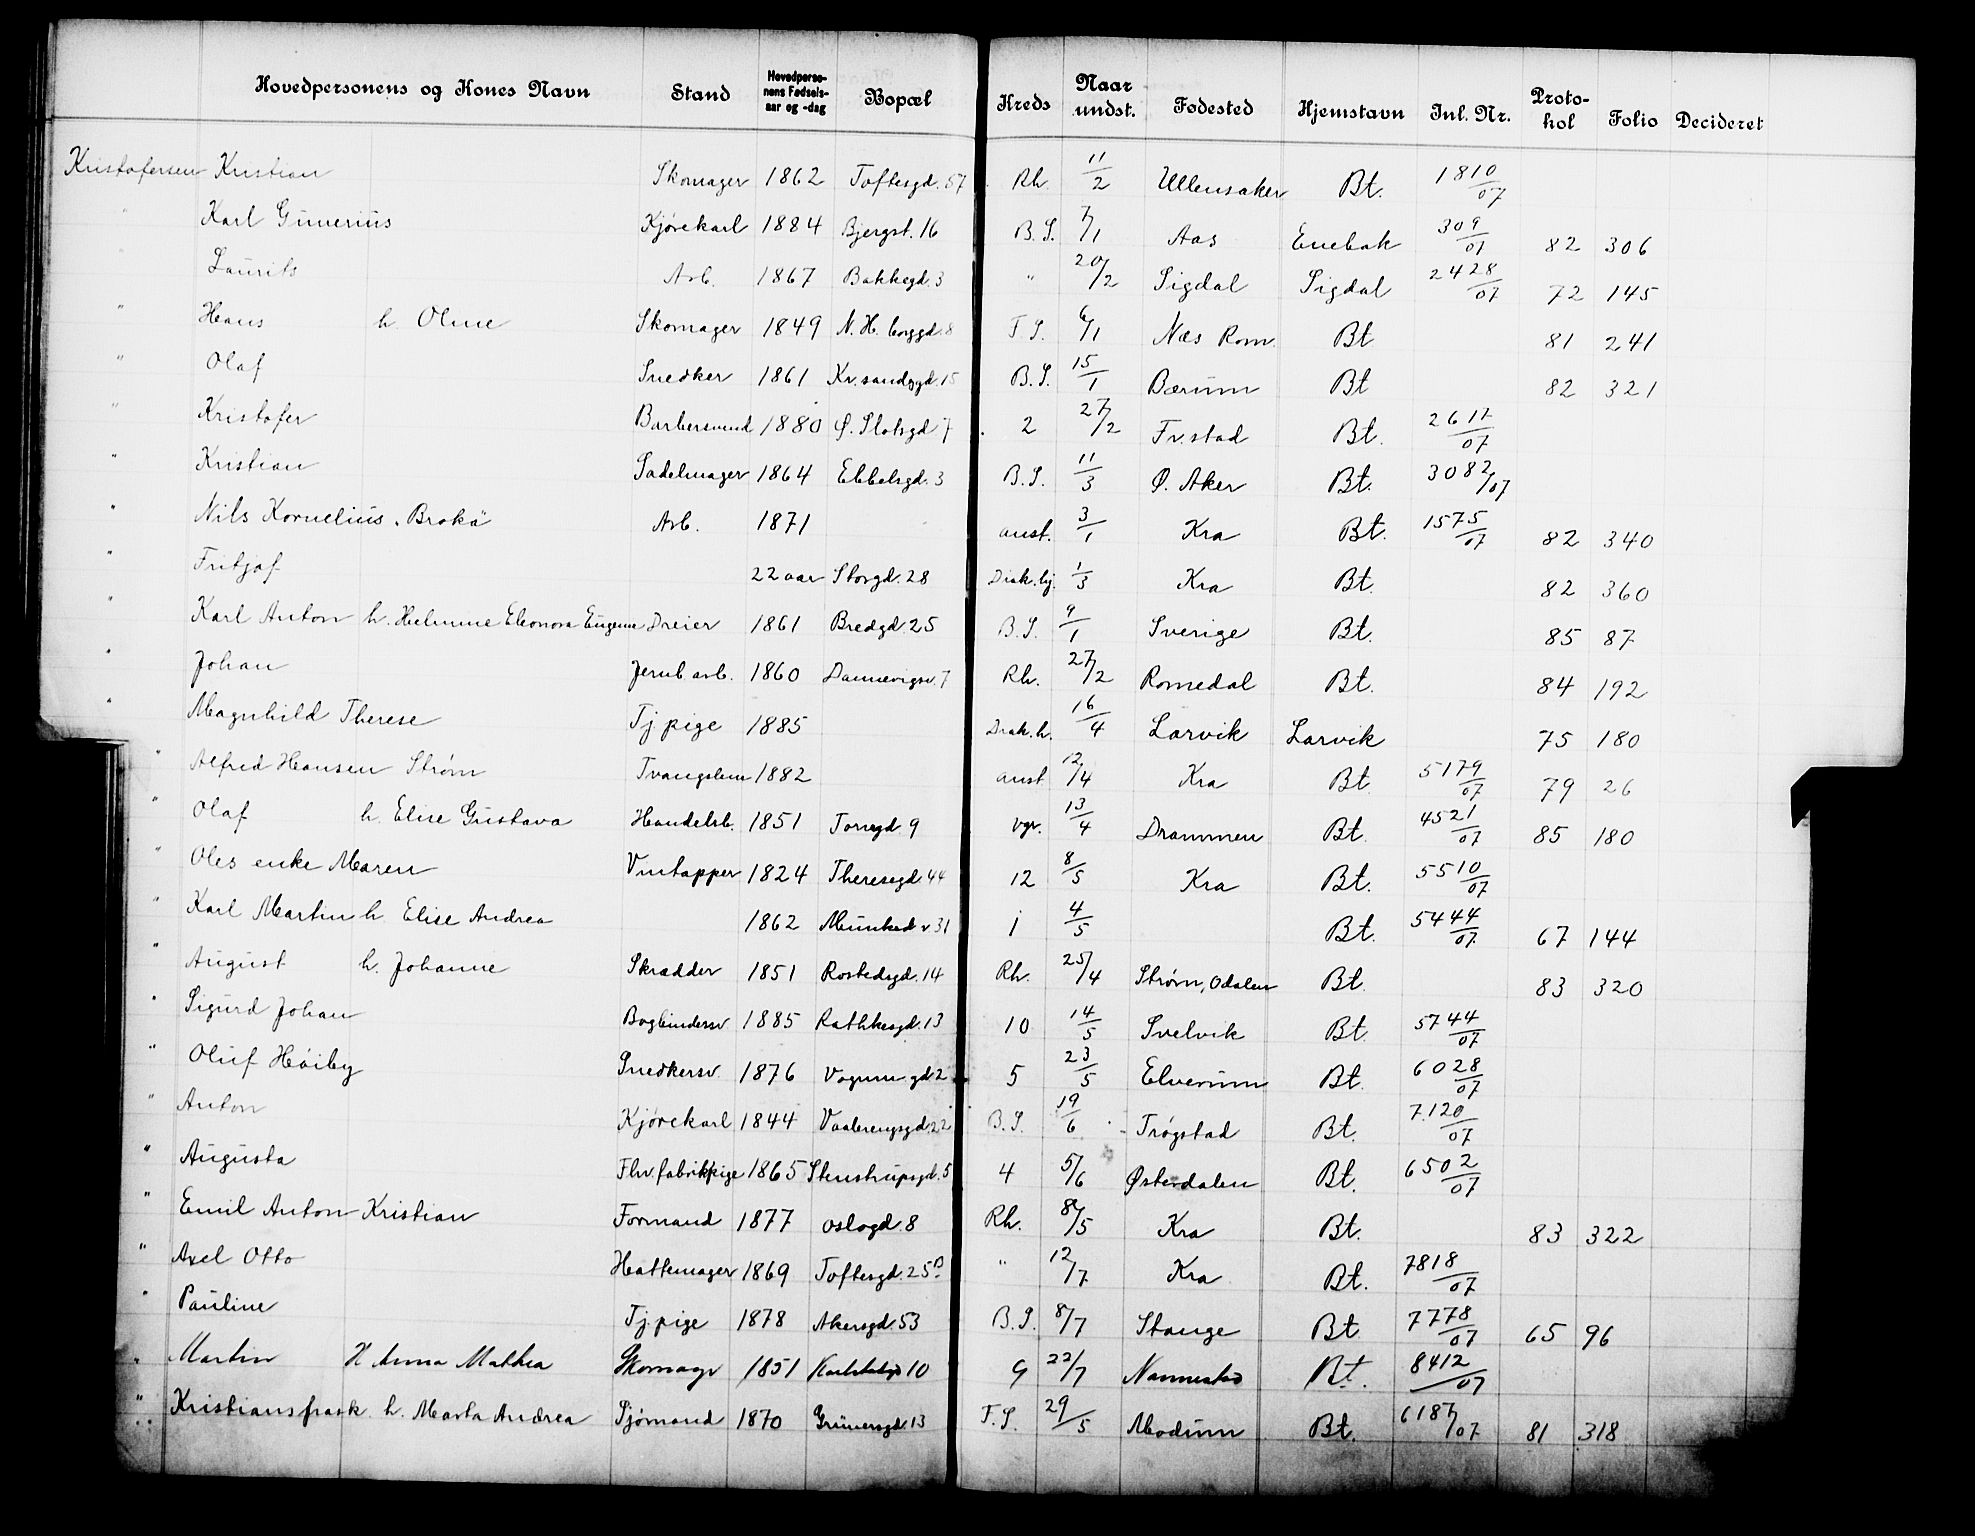 Hovedpersonens og Kones Navn Stand Hovedperso-nens Fødsels-aar og -dag Bopæl Kreds Naar undst. Fødested Hjemstavn Inl. Nr. Proto-kol Folio Decideret
Kristofersen Kristian Skomager 1862 Toftesgd. 57 Rh. 11/2 Ullensaker Bt. 1810/07
" Karl Gunerius Kjørekarl 1884 Bjergst. 16 B.S. 7/1 Aas Enebak 309/07 82 306
" Laurits Arb. 1867 Bakkegd. 3 " 20/2 Sigdal Sigdal 2428/07 72 145
" Hans h. Oline Skomager 1849 N. H. borggd. 8 F.S. 6/1 Næs Rom. Bt 81 241
" Olaf Snedker 1861 Kr.sandsgd. 15 B.S. 15/1 Bærum Bt 82 321
" Kristofer Barbersvend 1880 Ø. Slotsgd 7 2 27/2 Fr.stad Bt. 2617/07
" Kristian Sadelmager 1864 Ebbelsgd. 3 B.S. 11/3 Ø. Aker Bt. 3082/07
" Nils Kornelius. Brokä Arb. 1871 anst. 3/1 Kra Bt. 1575/07 82 340
" Fritjof 22 aar Storgd. 28 Diak.hj. 1/3 Kra Bt. 82 360
" Karl Anton h. Helmine Eleonora Eugenie Dreier 1861 Bredgd. 25 B.S. 9/1 Sverige Bt. 85 87
" Johan Jernb arb. 1860 Dannevigsv. 7 Rh. 27/2 Romedal Bt. 84 192
" Magnhild Therese Tj pige 1885 Diak. h. 16/4 Larvik Larvik 75 180
" Alfred Hansen Strøm Tvangslem 1882 anst 12/4 Kra Bt 5179/07 79 26
" Olaf h. Elise Gustava Handelsb. 1851 Torvgd. 9 vgr. 13/4 Drammen Bt. 4521/07 85 180
" Oles enke Maren Vintapper 1824 Theresegd. 44 12 8/5 Kra Bt. 5510/07
" Karl Martin h. Elise Andrea 1862 Munked v 31 1 4/5 Bt. 5444/07 67 144
" August h. Johanne Skrædder 1851 Rostedsgd. 14 Rh. 25/4 Strøm, Odalen Bt. 83 320
" Sigurd Johan Bogbindersv 1885 Rathkesgd. 13 10 14/5 Svelvik Bt. 5744/07
" Oluf Høiby Snedkersv. 1876 Vognm gd 2 5 23/5 Elverum Bt. 6028/07
" Anton Kjørekarl 1844 Vaalerengsgd. 22 B.S. 19/6 Trøgstad Bt. 7120/07
" Augusta Fhv. fabrikpige 1865 Stenstrupsgd. 5 4 5/6 Østerdalen Bt. 6502/07
" Emil Anton Kristian Formand 1877 Oslogd. 8 Rh. /5 Kra Bt. 83 322
" Axel Otto Hattemager 1869 Toftesgd. 25 B " 12/7 Kra Bt. 7818/07
" Pauline Tj. pige 1878 Akersgd. 53 B.S. 8/7 Stange Bt. 7778/07 65 96
" Martin H Anna Mathea Skomagr 1851 10 9 22/7 Nannestad Bt. 8412/07
" Kristiansfrask h. Marta Andrea Sjømand 1870 Grünersgd. 13 F.S. 29/5 Modum Bt. 6187/07 81 318